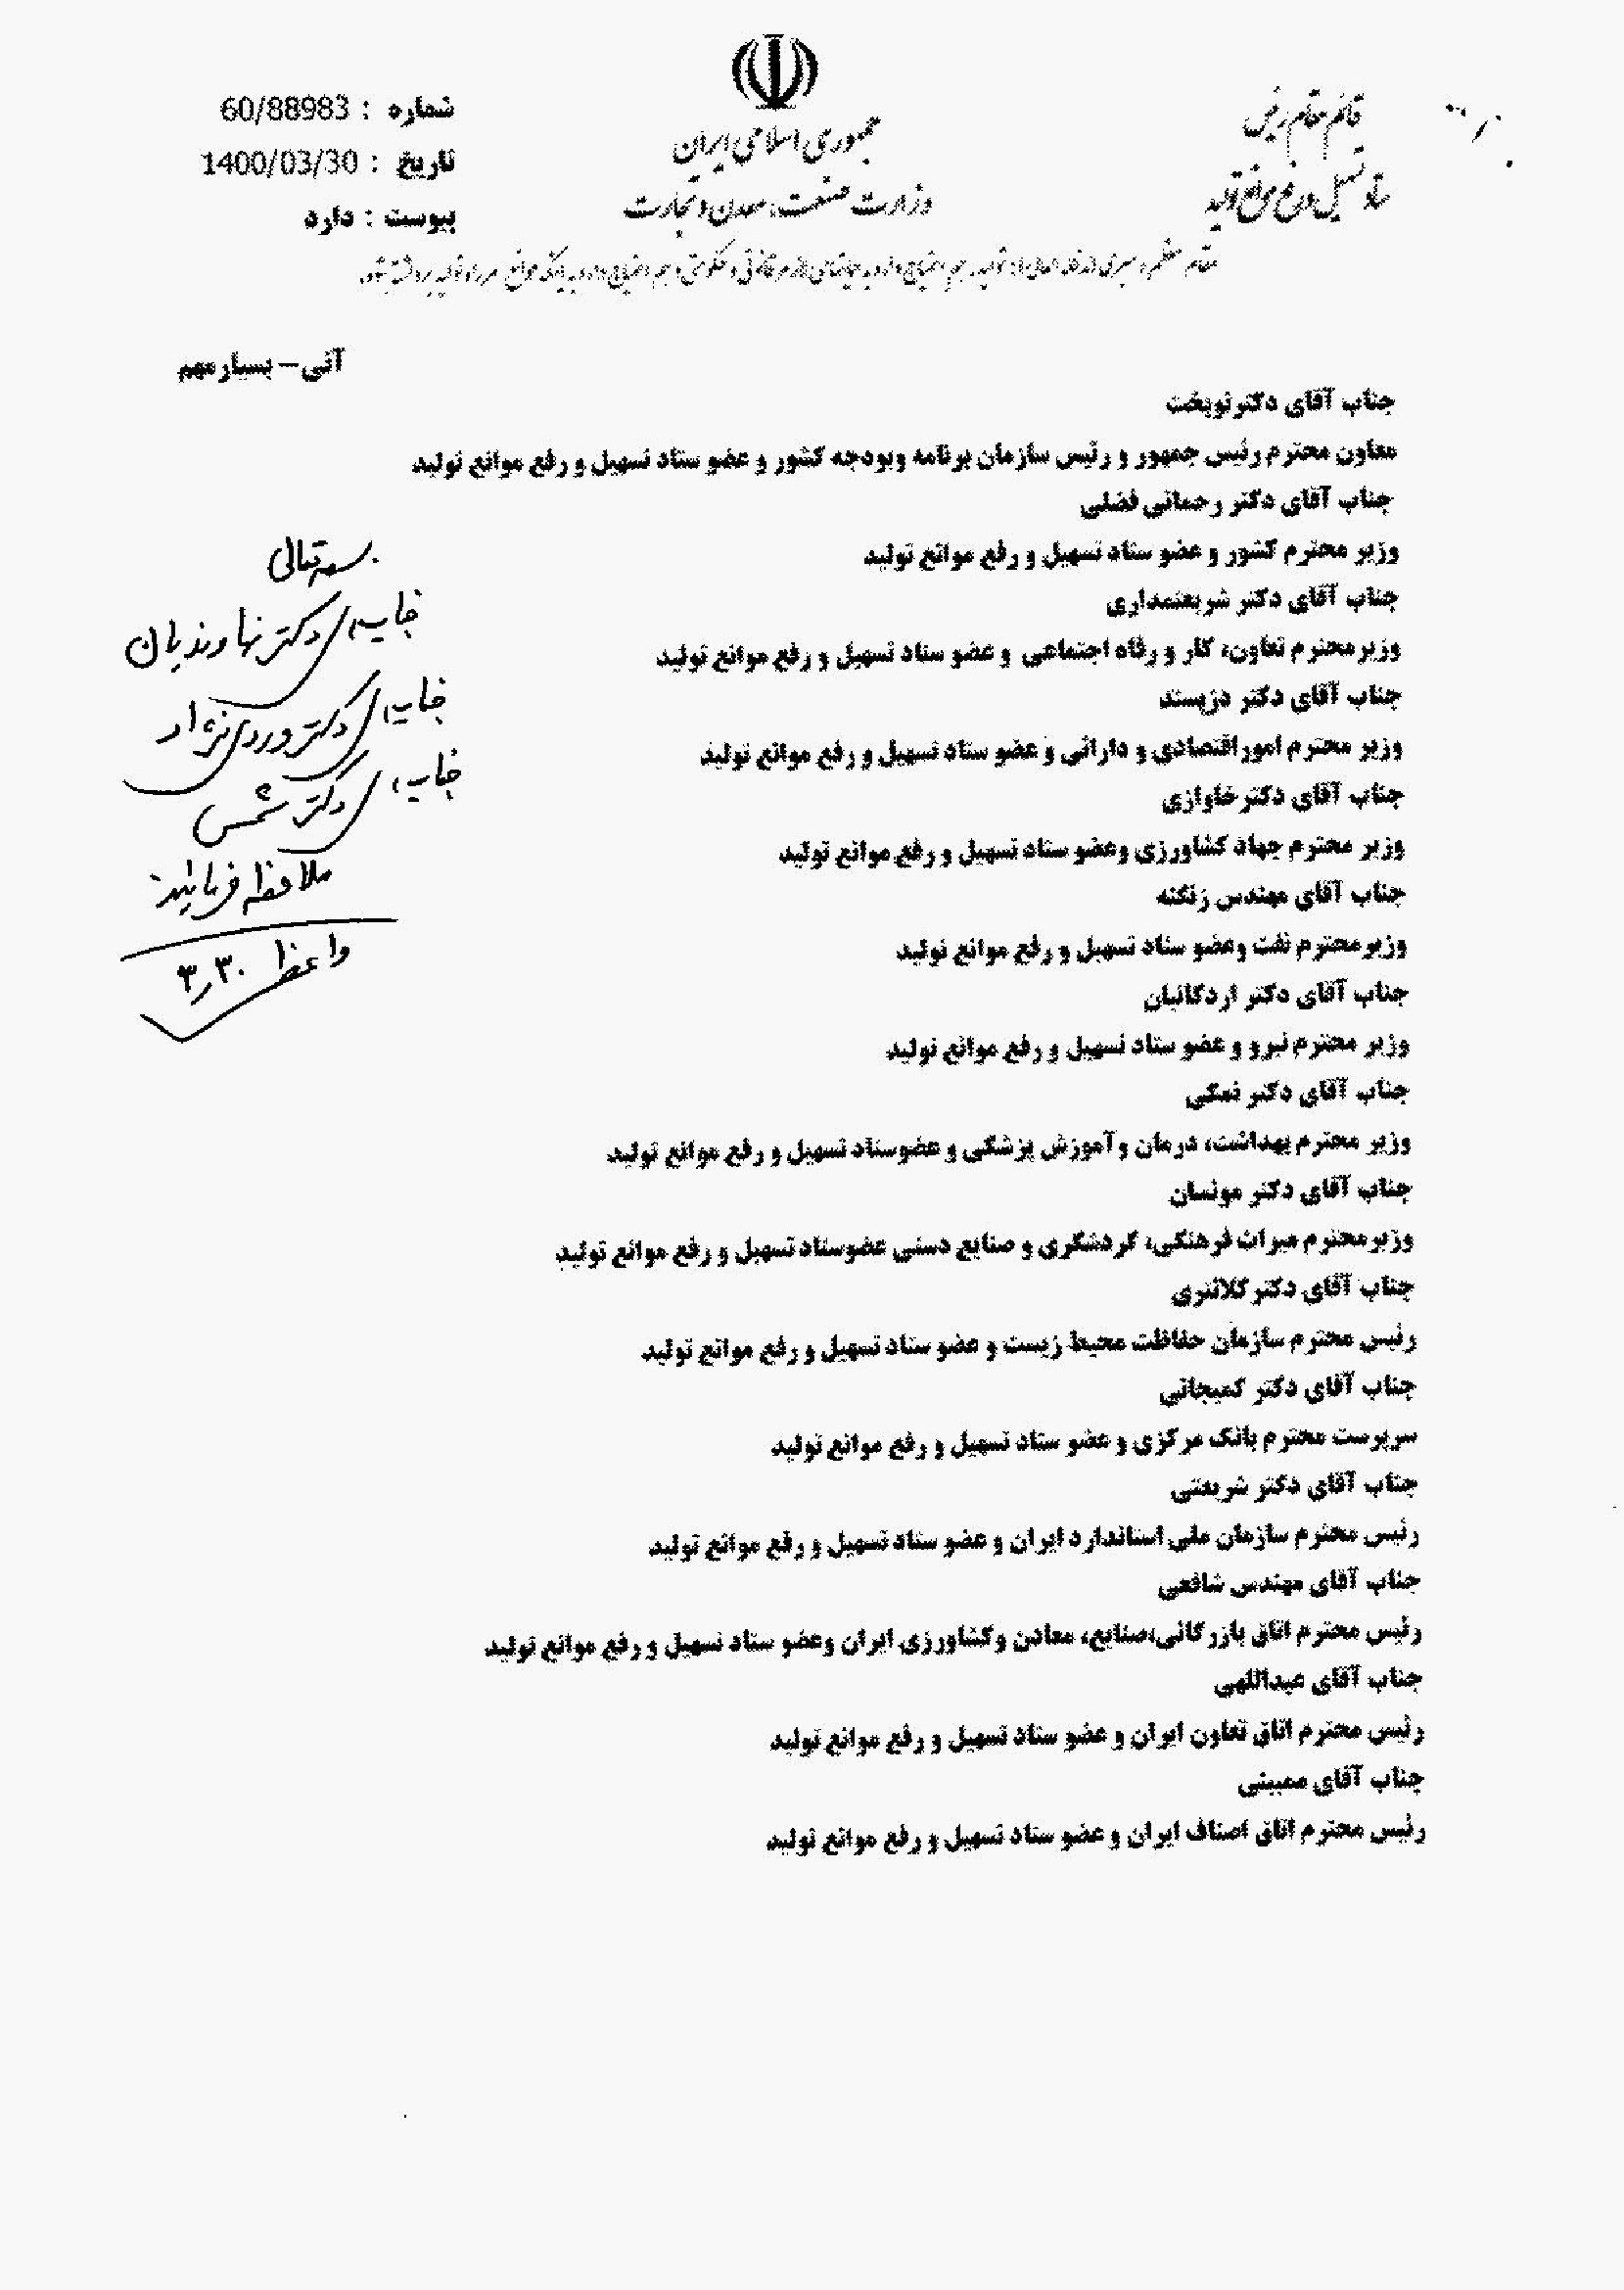 جمهوری اسلامی ایران
وزارت صنعت، معدن و تجارت
قائم مقام رئیس
ستاد تسهیل و رفع موانع تولید
شماره : 60/88983
تاریخ : 1400/03/30
پیوست : دارد
مقام معظم رهبری
آنی – بسیار مهم
جناب آقای دکتر نوبخت
معاون محترم رئیس جمهور و رئیس سازمان برنامه و بودجه کشور و عضو ستاد تسهیل و رفع موانع تولید
جناب آقای دکتر رحمانی فضلی
وزیر محترم کشور و عضو ستاد تسهیل و رفع موانع تولید
جناب آقای دکتر شریعتمداری
وزیر محترم تعاون، کار و رفاه اجتماعی و عضو ستاد تسهیل و رفع موانع تولید
جناب آقای دکتر دژپسند
وزیر محترم امور اقتصادی و دارائی و عضو ستاد تسهیل و رفع موانع تولید
جناب آقای دکتر خاوازی
وزیر محترم جهاد کشاورزی و عضو ستاد تسهیل و رفع موانع تولید
جناب آقای مهندس زنگنه
وزیر محترم نفت و عضو ستاد تسهیل و رفع موانع تولید
جناب آقای دکتر اردکانیان
وزیر محترم نیرو و عضو ستاد تسهیل و رفع موانع تولید
جناب آقای دکتر نمکی
وزیر محترم بهداشت، درمان و آموزش پزشکی و عضو ستاد تسهیل و رفع موانع تولید
جناب آقای دکتر مونسان
وزیر محترم میراث فرهنگی، گردشگری و صنایع دستی عضو ستاد تسهیل و رفع موانع تولید
جناب آقای دکتر کلانتری
رئیس محترم سازمان حفاظت محیط زیست و عضو ستاد تسهیل و رفع موانع تولید
جناب آقای دکتر کمیجانی
سرپرست محترم بانک مرکزی و عضو ستاد تسهیل و رفع موانع تولید
جناب آقای دکتر شریعتی
رئیس محترم سازمان ملی استاندارد ایران و عضو ستاد تسهیل و رفع موانع تولید
جناب آقای مهندس شافعی
رئیس محترم اتاق بازرگانی، صنایع، معادن و کشاورزی ایران و عضو ستاد تسهیل و رفع موانع تولید
جناب آقای عبداللهی
رئیس محترم اتاق تعاون ایران و عضو ستاد تسهیل و رفع موانع تولید
جناب آقای ممبینی
رئیس محترم اتاق اصناف ایران و عضو ستاد تسهیل و رفع موانع تولید
بسمه تعالی
جناب آقای دکتر نهاوندیان
جناب آقای دکتر وردی نژاد
جناب آقای دکتر شمس
ملاحظه فرمایند
واعظی ۳/۳۰